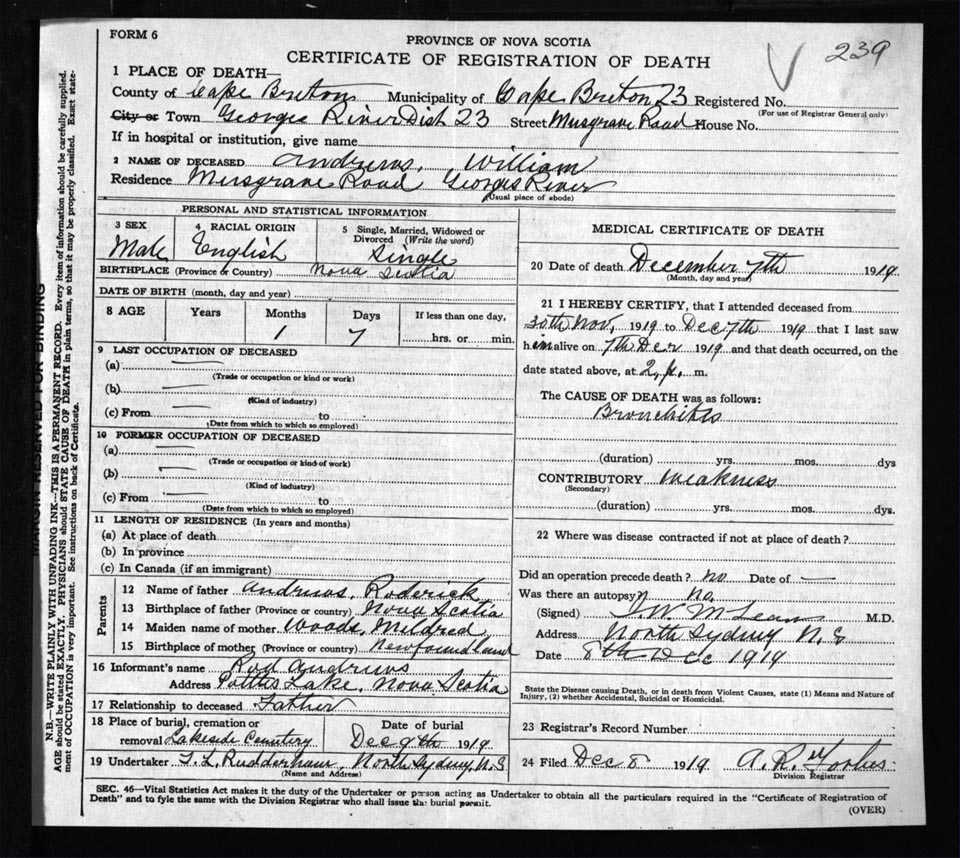 FORM 6
PROVINCE OF NOVA SCOTIA
CERTIFICATE OF REGISTRATION OF DEATH
239
1 PLACE OF DEATH—
County of Cape Breton Municipality of Cape Breton 23 Registered No.
(For use of Registrar General only)
City or Town Georges River Dist 23 Street Musgrave Road House No.
If in hospital or institution, give name
2 NAME OF DECEASED Andrews, William
Residence Musgrave Road Georges River
(Usual place of abode)
PERSONAL AND STATISTICAL INFORMATION
3 SEX Male
4 RACIAL ORIGIN English
5 Single, Married, Widowed or Divorced (Write the word) Single
BIRTHPLACE (Province or Country) Nova Scotia
DATE OF BIRTH (month, day and year)
8 AGE Years Months Days If less than one day,
1 7 hrs. or min.
9 LAST OCCUPATION OF DECEASED
(a) —
(Trade or occupation or kind or work)
(b) —
(Kind of industry)
(c) From — to
(Date from which to which so employed)
10 FORMER OCCUPATION OF DECEASED
(a) —
(Trade or occupation or kind of work)
(b) —
(Kind of industry)
(c) From — to
(Date from which to which so employed)
11 LENGTH OF RESIDENCE (In years and months)
(a) At place of death
(b) In province
(c) In Canada (if an immigrant)
Parents
12 Name of father Andrews, Roderick
13 Birthplace of father (Province or country) Nova Scotia
14 Maiden name of mother Woods, Mildred
15 Birthplace of mother (Province or country) Newfoundland
16 Informant's name Rod Andrews
Address Lake, Nova Scotia
17 Relationship to deceased Father
18 Place of burial, cremation or removal Lakeside Cemetery
Date of burial Dec 9th 1919
19 Undertaker Rudderham, North Sydney, N.S
(Name and Address)
MEDICAL CERTIFICATE OF DEATH
20 Date of death December 7th 1919
(Month, day and year)
21 I HEREBY CERTIFY, that I attended deceased from
30th Nov, 1919 to Dec 7th 1919 that I last saw
him alive on 7th Dec 1919 and that death occurred, on the
date stated above, at 2 p. m.
The CAUSE OF DEATH was as follows:
Bronchitis
(duration) yrs. mos. dys
CONTRIBUTORY Weakness
(Secondary)
(duration) yrs. mos. dys.
22 Where was disease contracted if not at place of death?
Did an operation precede death? No Date of —
Was there an autopsy No.
(Signed) McLean M.D.
Address North Sydney N.S
Date 8th Dec 1919
State the Disease causing Death, or in death from Violent Causes, state (1) Means and Nature of
Injury, (2) whether Accidental, Suicidal or Homicidal.
23 Registrar's Record Number
24 Filed Dec 8 1919 A. R. Forbes
Division Registrar
SEC. 46—Vital Statistics Act makes it the duty of the Undertaker or person acting as Undertaker to obtain all the particulars required in the "Certificate of Registration of
Death" and to fyle the same with the Division Registrar who shall issue the burial permit.
(OVER)
MARGIN RESERVED FOR BINDING
N.B.—WRITE PLAINLY WITH UNFADING INK—THIS IS A PERMANENT RECORD. Every item of information should be carefully supplied.
AGE should be stated EXACTLY. PHYSICIANS should STATE CAUSE OF DEATH in plain terms, so that it may be properly classified. Exact state-
ment of OCCUPATION is very important. See instructions on back of Certificate.